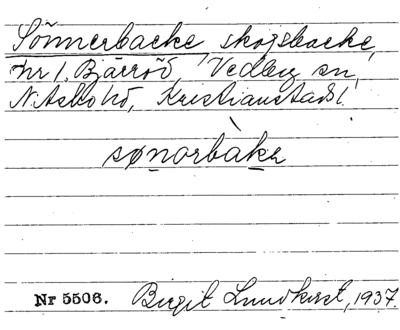 Sönnerbacke skogsbacke,
nr 1. Bjärröd, Vedby sn,
N. Åsbo hd, Kristianstads l.
sønorbàkə
Nr 5506. Birgit Lundkvist, 1937